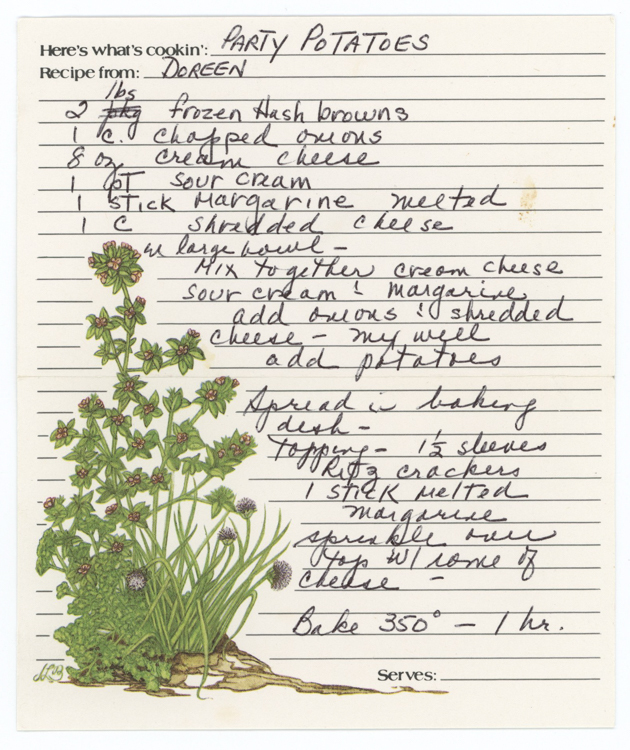 Here's what's cookin': PARTY POTATOES
Recipe from: DOREEN
lbs
2 pkg frozen Hash browns
1 c. chopped onions
8 oz cream cheese
1 pT sour cream
1 STick Margarine melted
1 C shredded cheese
in large bowl -
Mix together cream cheese
sour cream & margarine
add onions & shredded
cheese - mix well
add potatoes
Spread in baking
dish -
Topping - 1½ sleeves
Ritz crackers
1 STICK melted
margarine
sprinkle over
top w/ some of
cheese -
Bake 350° - 1 hr.
Serves: